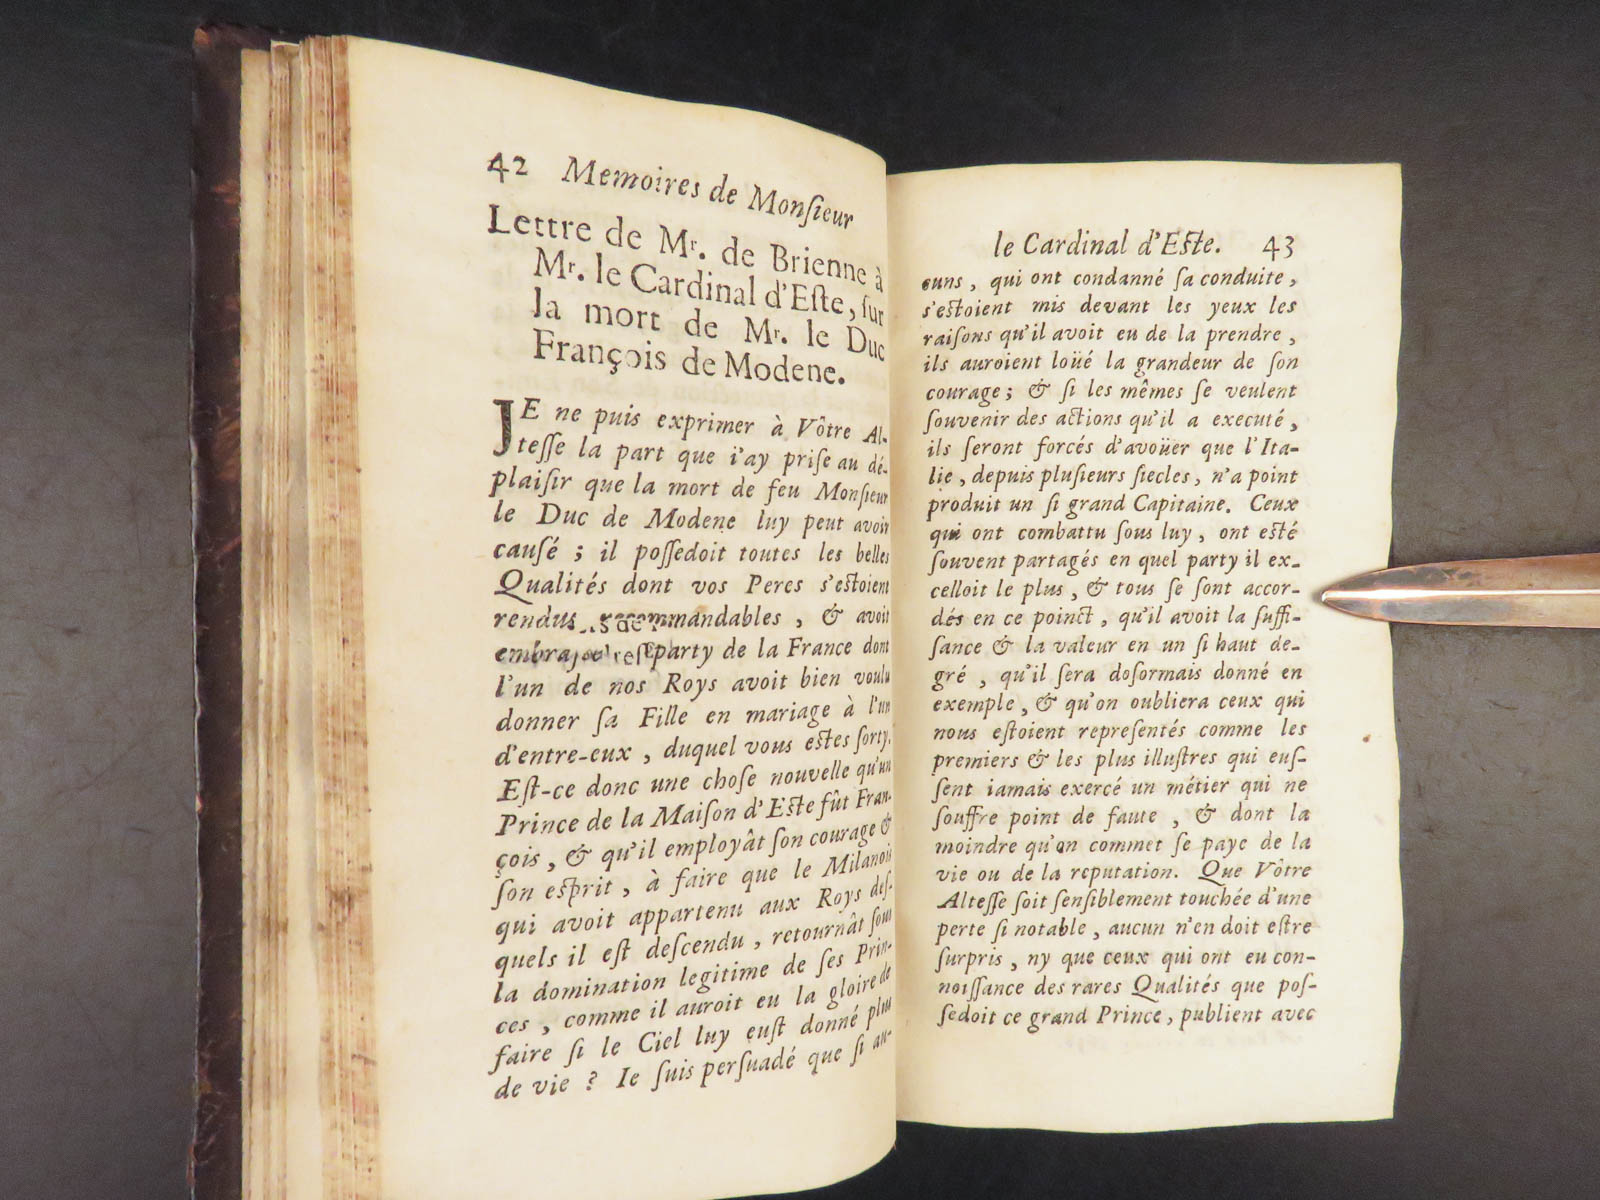 42 Memoires de Monſieur
Lettre de Mr. de Brienne à
Mr. le Cardinal d'Eſte, ſur
la mort de Mr. le Duc
François de Modene.
JE ne puis exprimer à Vôtre Al-
teſſe la part que i'ay priſe au dé-
plaiſir que la mort de feu Monſieur
le Duc de Modene luy peut avoir
cauſé ; il poſſedoit toutes les belles
Qualités dont vos Peres s'eſtoient
rendus recommandables , & avoit
party de la France dont
l'un de nos Roys avoit bien voulu
donner ſa Fille en mariage à l'un
d'entre-eux , duquel vous eſtes ſorty.
Eſt-ce donc une choſe nouvelle qu'un
Prince de la Maiſon d'Eſte fût Fran-
çois , & qu'il employât ſon courage &
ſon eſprit , à faire que le Milanois
qui avoit appartenu aux Roys deſ-
quels il eſt deſcendu , retournât ſous
la domination legitime de ſes Prin-
ces , comme il auroit eu la gloire de
faire ſi le Ciel luy euſt donné plus
de vie ? Ie ſuis perſuadé que ſi au-
le Cardinal d'Eſte. 43
cuns , qui ont condanné ſa conduite ,
s'eſtoient mis devant les yeux les
raiſons qu'il avoit eu de la prendre ,
ils auroient loüé la grandeur de ſon
courage ; & ſi les mêmes ſe veulent
ſouvenir des actions qu'il a executé ,
ils ſeront forcés d'avoüer que l'Ita-
lie , depuis pluſieurs ſiecles , n'a point
produit un ſi grand Capitaine. Ceux
qui ont combattu ſous luy , ont eſté
ſouvent partagés en quel party il ex-
celloit le plus , & tous ſe ſont accor-
dés en ce poinct , qu'il avoit la ſuffi-
ſance & la valeur en un ſi haut de-
gré , qu'il ſera doſormais donné en
exemple , & qu'on oubliera ceux qui
nous eſtoient repreſentés comme les
premiers & les plus illuſtres qui euſ-
ſent iamais exercé un métier qui ne
ſouffre point de faute , & dont la
moindre qu'on commet ſe paye de la
vie ou de la reputation. Que Vôtre
Alteſſe ſoit ſenſiblement touchée d'une
perte ſi notable , aucun n'en doit eſtre
ſurpris , ny que ceux qui ont eu con-
noiſſance des rares Qualités que poſ-
ſedoit ce grand Prince , publient avec